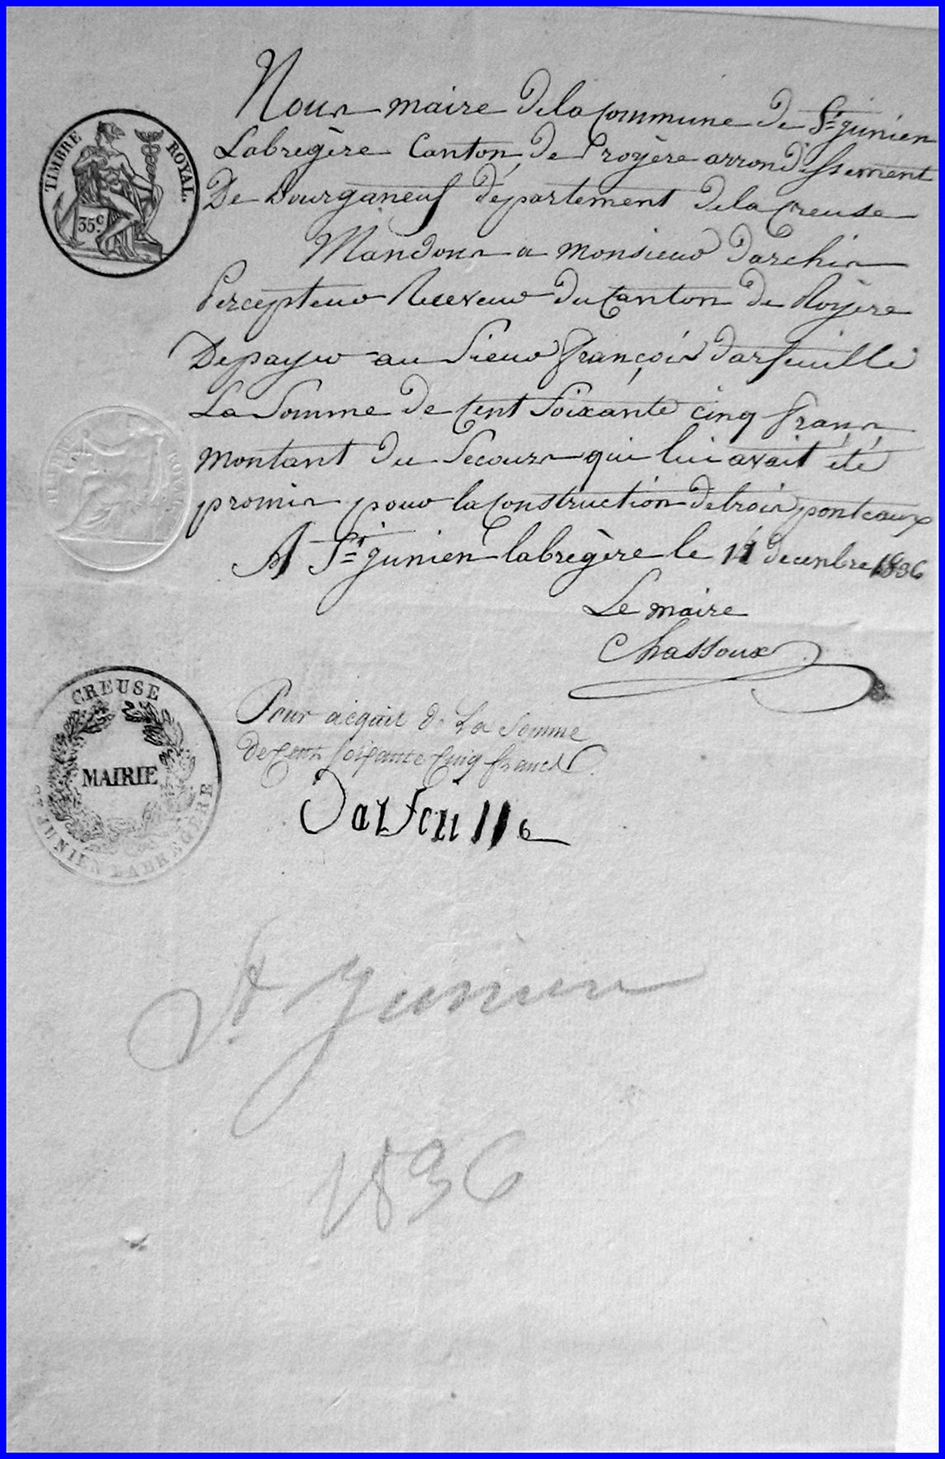 Nous maire de la Commune de St. junien
Labregère Canton de royère arrondissement
De Bourganeuf département de la Creuse
Mandons a monsieur Darchis
Percepteur Receveur du Canton de Royère
De payer au Sieur françois Darfeuille
La Somme de Cent Soixante cinq francs
montant du Secours qui lui avait été
promis pour la Construction de trois ponteaux
A St. junien labregère le 11 decembre 1836
Le maire
Chassoux
TIMBRE ROYAL.
35c
CREUSE
MAIRIE
ST JUNIEN LABREGÈRE
Pour acquit de La Somme
de Cent Soixante Cinq francs
Darfeuille
St Junien
1836